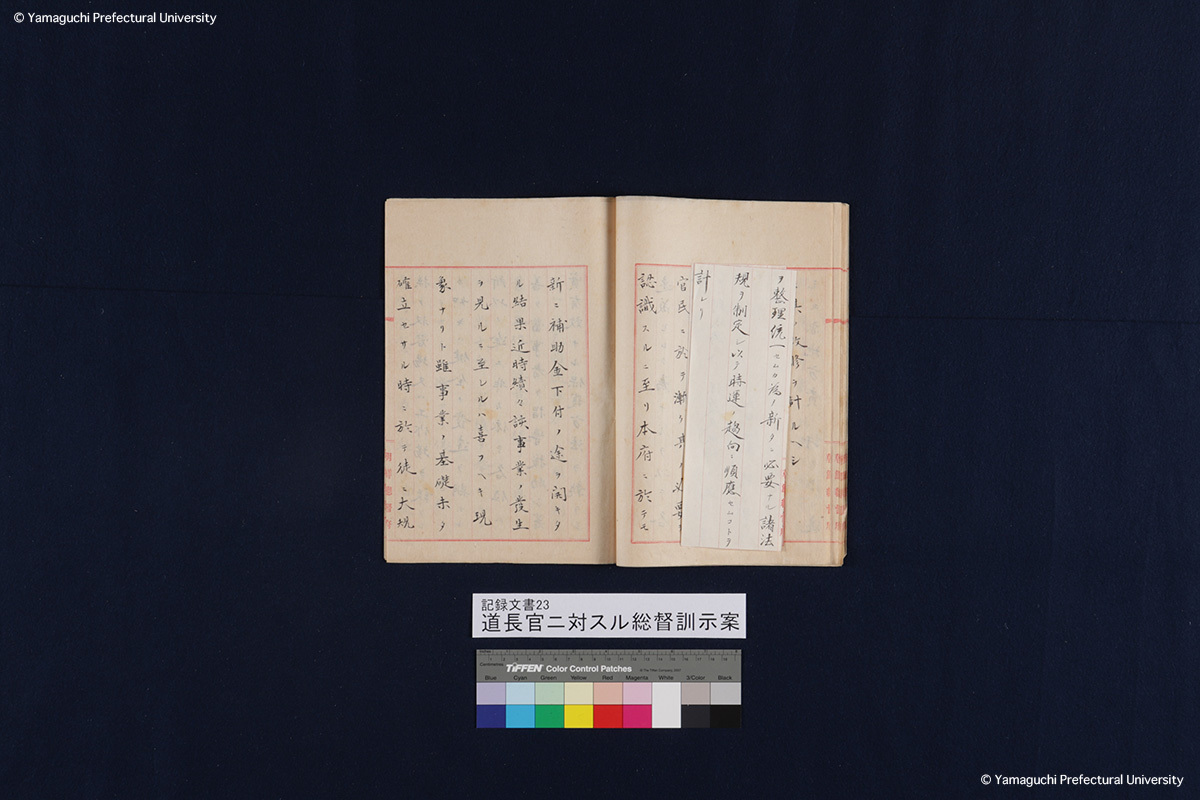 © Yamaguchi Prefectural University
ヲ計ルヘシ
ヲ整理統一セムカ為ノ新タニ必要ナル諸法
規ヲ制定シ以テ時運ノ趨向ニ順應セムコトヲ
計レリ
官民ニ於テ漸ク其ノ必要ヲ
認識スルニ至リ本府ニ於テモ
新ニ補助金下付ノ途ヲ開キタ
ル結果近時續々該事業ノ發生
ヲ見ルニ至レルハ喜フヘキ現
象ナリト雖事業ノ基礎未タ
確立セサル時ニ於テ徒ニ大規
記録文書23
道長官ニ対スル総督訓示案
Inches
Centimetres
TIFFEN Color Control Patches
© The Tiffen Company, 2007
Blue Cyan Green Yellow Red Magenta White 3/Color Black
© Yamaguchi Prefectural University